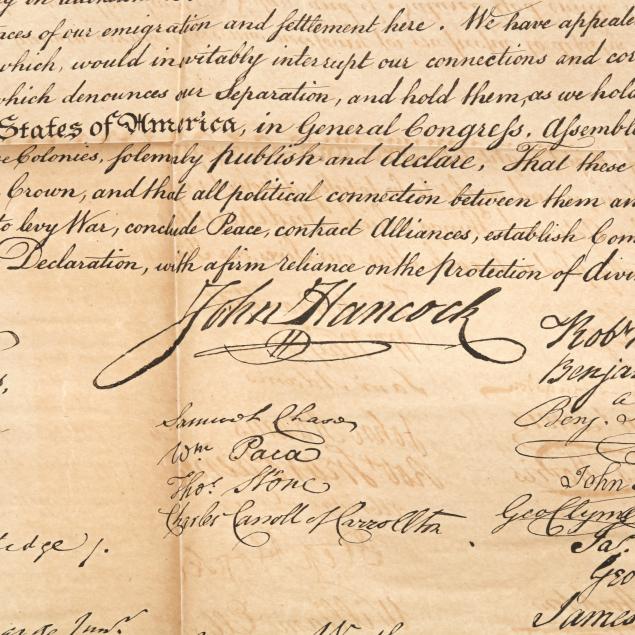 aces of our emigration and settlement here. We have appeale
which, would inevitably interrupt our connections and cor
which denounces our Separation, and hold them, as we hold
States of America, in General Congress, Assembl
e Colonies, solemnly publish and declare, That these
Crown, and that all political connection between them an
to levy War, conclude Peace, contract Alliances, establish Com
Declaration, with a firm reliance on the protection of divi
John Hancock
Rob
Benja
Samuel Chase
a
Benj.
Wm Paca
Thos. Stone
John
Charles Carroll of Carrollton
Geo Clyme
Ja.
ledge /.
Geo
James
Junr.